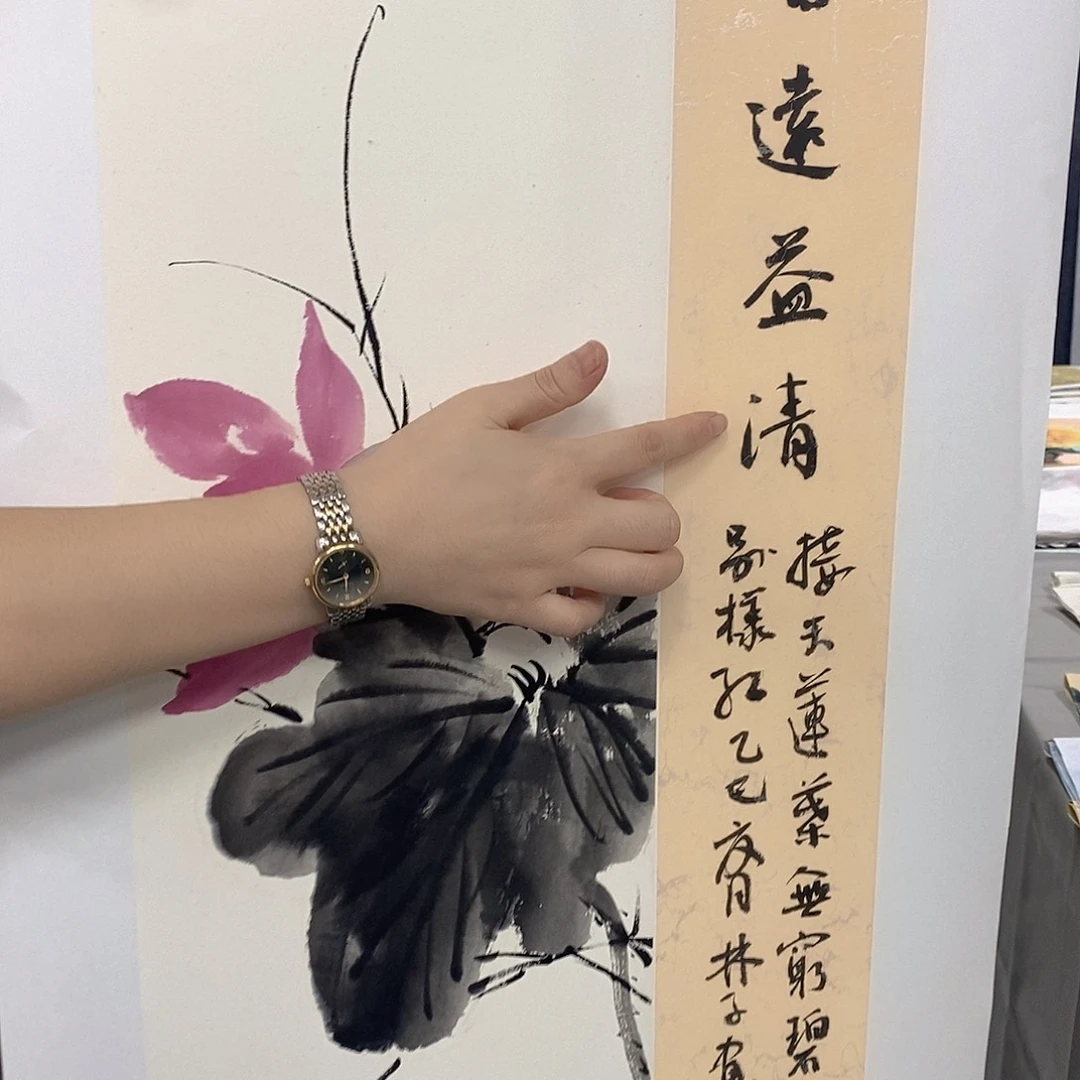 遠益清
接天蓮葉無窮碧
別樣紅乙巳夜月林子